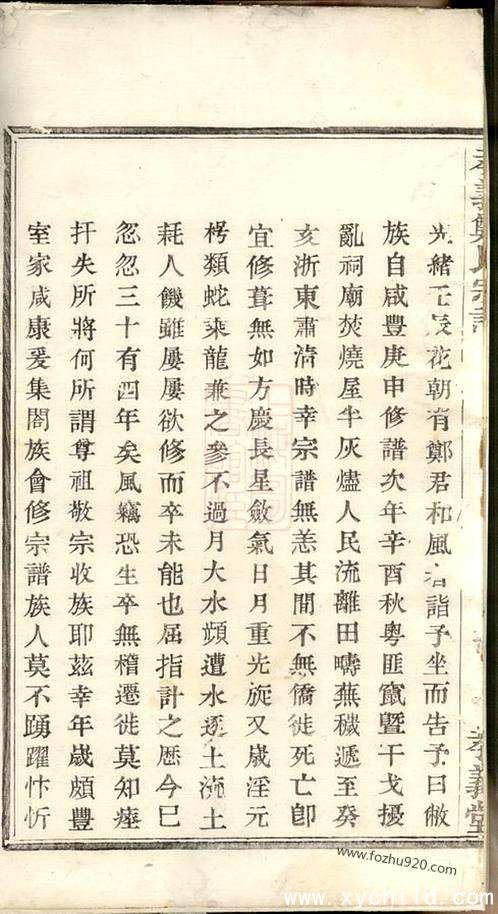 孝義鄭氏宗譜
孝義堂
光緒壬辰花朝有鄭君和風者詣予坐而告予曰敝
族自咸豐庚申修譜次年辛酉秋粵匪竄暨干戈擾
亂祠廟焚燒屋半灰燼人民流離田疇蕪穢遞至癸
亥浙東肅清時幸宗譜無恙其間不無僑徙死亡卽
宜修葺無如方慶長星斂氣日月重光旋又歲淫元
枵類蛇乘龍兼之參不過月大水頻遭水逐土流土
耗人饑雖屢屢欲修而卒未能也屈指計之歷今已
忽忽三十有四年矣風竊恐生卒無稽遷徙莫知瘞
扦失所將何所謂尊祖敬宗收族耶茲幸年歲頗豐
室家咸康爰集閤族會修宗譜族人莫不踴躍忭忻
www.fozhu920.com
www.xychild.com